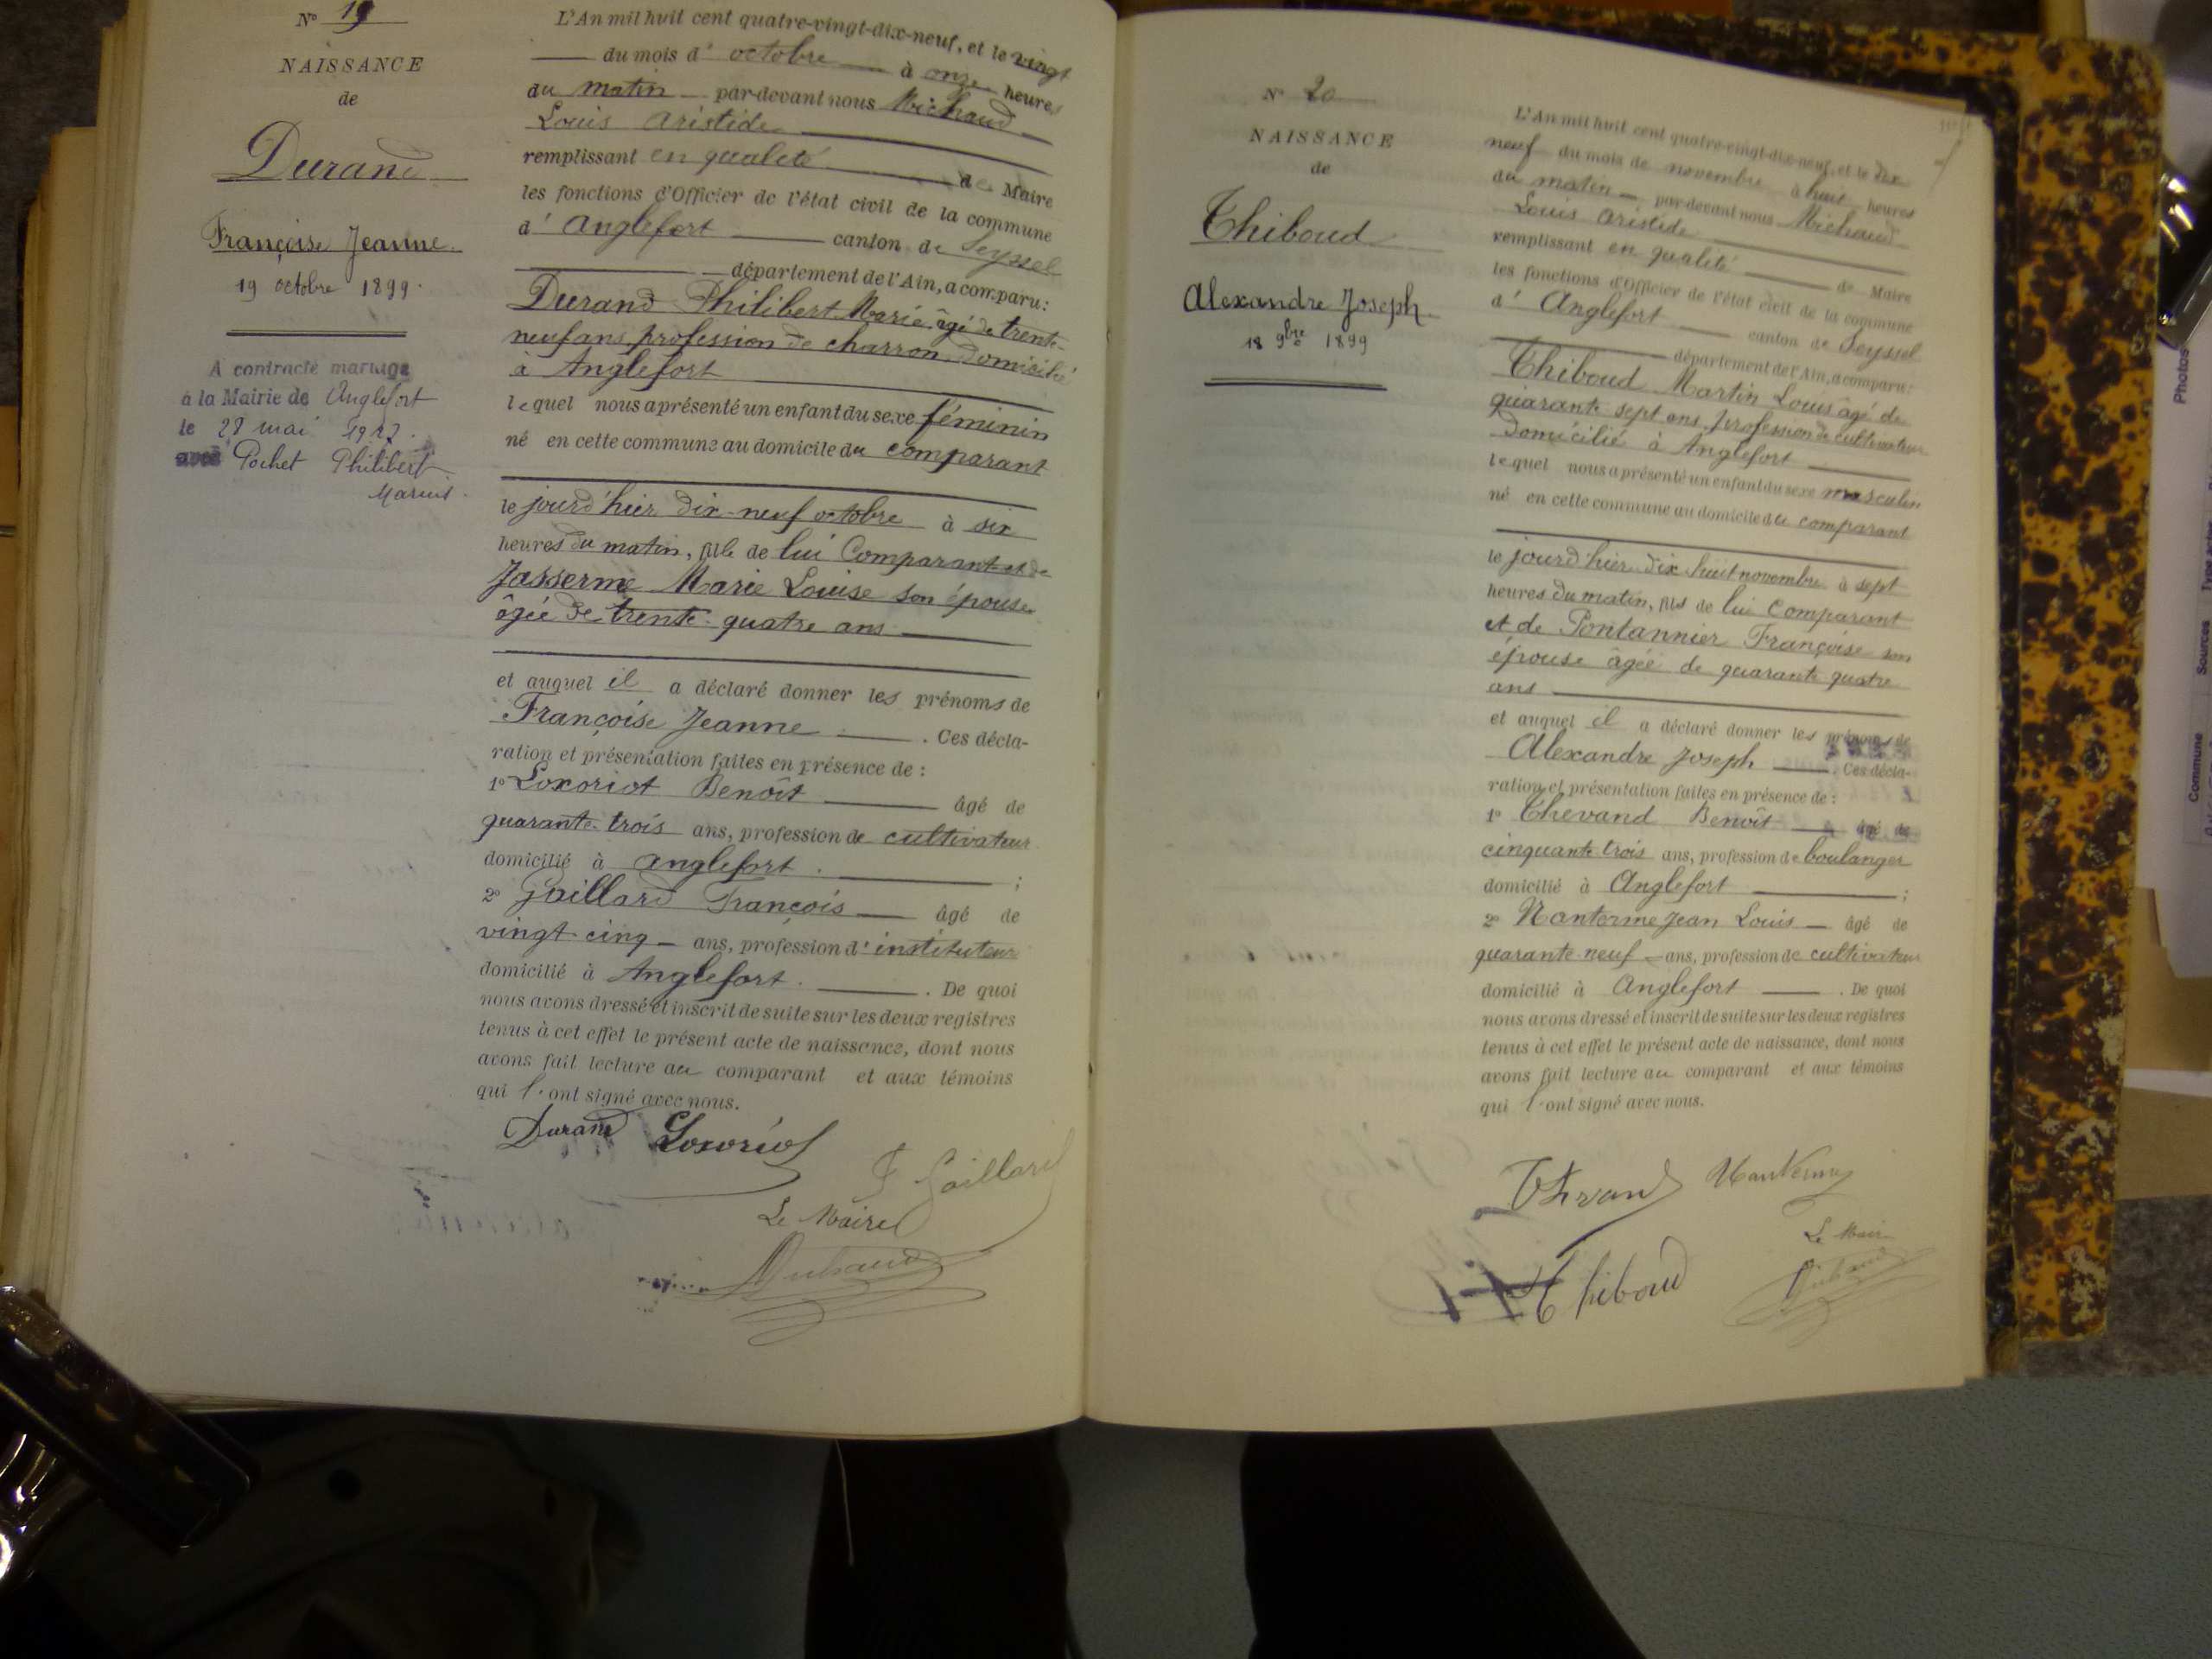 N° 19
NAISSANCE
de
Durand
Françoise Jeanne
19 octobre 1899.
A contracté mariage
à la Mairie de Anglefort
le 28 mai
avec Pochet Philibert
Marius.
L'An mil huit cent quatre-vingt-dix-neuf, et le vingt
du mois d' octobre à onze heures
du matin par-devant nous Michaud
Louis Aristide
remplissant en qualité de Maire
les fonctions d'Officier de l'état civil de la commune
d' Anglefort canton de Seyssel
département de l'Ain, a comparu :
Durand Philibert Marie, âgé de trente-
neuf ans profession de charron domicilié
à Anglefort
lequel nous a présenté un enfant du sexe féminin
né en cette commune au domicile du comparant
le jourd'hier dix-neuf octobre à six
heures du matin, fille de lui Comparant et de
Jasserme Marie Louise son épouse
âgée de trente-quatre ans
et auquel il a déclaré donner les prénoms de
Françoise Jeanne . Ces décla-
ration et présentation faites en présence de :
1° Loxoriot Benoît âgé de
quarante-trois ans, profession de cultivateur
domicilié à Anglefort . ;
2° Gaillard François âgé de
vingt-cinq ans, profession d' instituteur
domicilié à Anglefort . De quoi
nous avons dressé et inscrit de suite sur les deux registres
tenus à cet effet le présent acte de naissance, dont nous
avons fait lecture au comparant et aux témoins
qui l'ont signé avec nous.
Durand Loxoriot
F Gaillard
Le Maire
Michaud
N° 20
NAISSANCE
de
Thiboud
Alexandre Joseph
18 9bre 1899
L'An mil huit cent quatre-vingt-dix-neuf, et le dix
neuf du mois de novembre à huit heures
du matin par-devant nous Michaud
Louis Aristide
remplissant en qualité de Maire
les fonctions d'Officier de l'état civil de la commune
d' Anglefort canton de Seyssel
département de l'Ain, a comparu :
Thiboud Martin Louis âgé de
quarante sept ans, profession de cultivateur
domicilié à Anglefort
lequel nous a présenté un enfant du sexe masculin
né en cette commune au domicile du comparant
le jourd'hier dix huit novembre à sept
heures du matin, fils de lui Comparant
et de Pontannier Françoise son
épouse âgée de quarante quatre
ans
et auquel il a déclaré donner les prénoms de
Alexandre Joseph . Ces décla-
ration et présentation faites en présence de :
1° Thevand Benoît âgé de
cinquante trois ans, profession de boulanger
domicilié à Anglefort ;
2° Nanterme Jean Louis âgé de
quarante-neuf ans, profession de cultivateur
domicilié à Anglefort . De quoi
nous avons dressé et inscrit de suite sur les deux registres
tenus à cet effet le présent acte de naissance, dont nous
avons fait lecture au comparant et aux témoins
qui l'ont signé avec nous.
Nanterme
Le Maire
Thiboud
Michaud
Photos
Sources
Commune